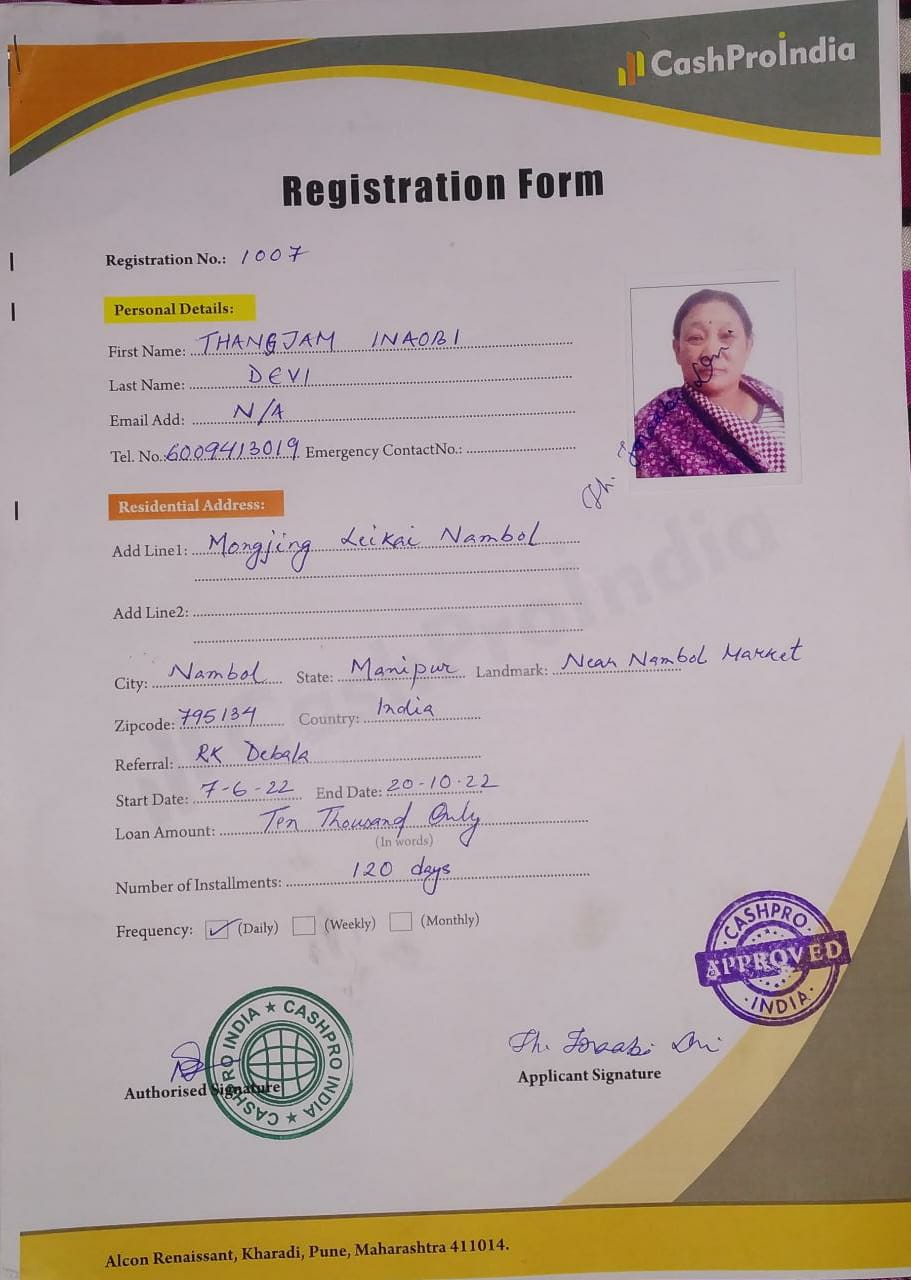 CashProIndia
Registration Form
Registration No.: 1007
Personal Details:
First Name: THANGJAM INAOBI
Last Name: DEVI
Email Add: N/A
Tel. No.: 6009413019 Emergency ContactNo.:
Residential Address:
Add Line1: Mongjing Leikai Nambol
Add Line2:
City: Nambol State: Manipur Landmark: Near Nambol Market
Zipcode: 795134 Country: India
Referral: RK Debala
Start Date: 7-6-22 End Date: 20-10-22
Loan Amount: Ten Thousand Only
(In words)
Number of Installments: 120 days
Frequency: (Daily) (Weekly) (Monthly)
CASHPRO
APPROVED
INDIA
CASHPRO INDIA ★ CASHPRO INDIA ★
Authorised Signature
Th.
Applicant Signature
Alcon Renaissant, Kharadi, Pune, Maharashtra 411014.